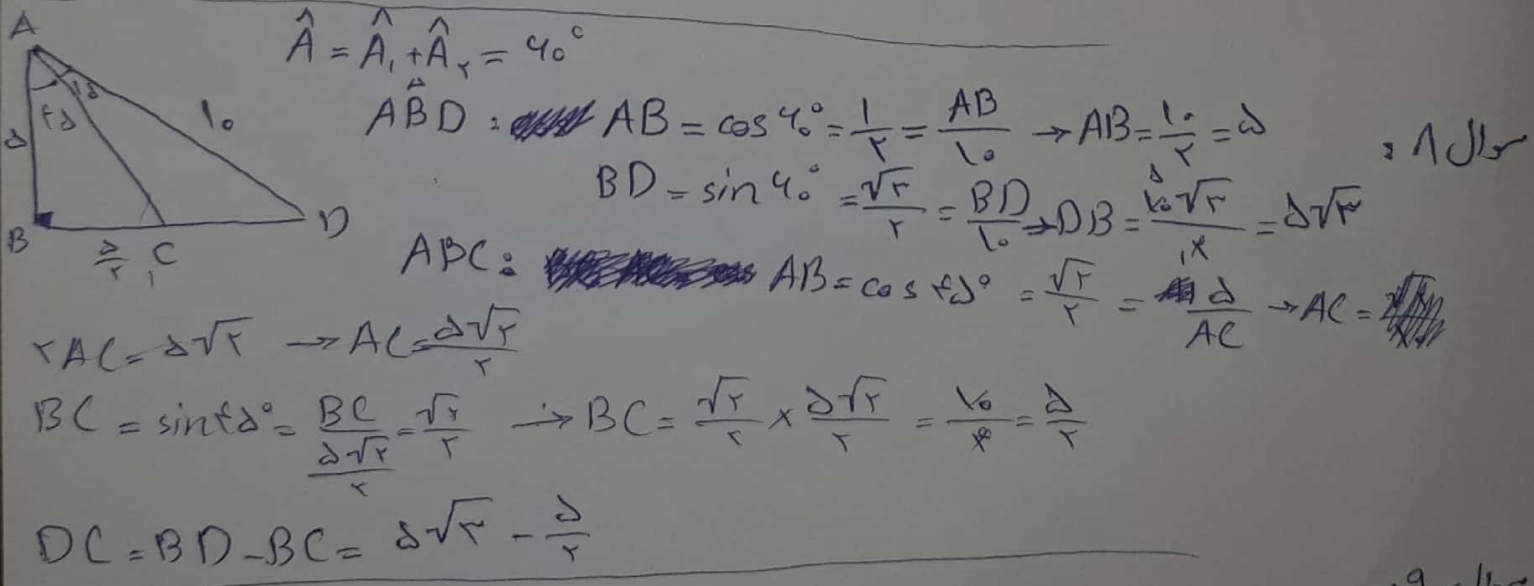 سوال ۸ :
A
۴۵
۱۵
۵
۱۰
B
۵/۲
C
D
Â = Â₁ + Â₂ = ۶۰°
ABD : AB = cos ۶۰° = ۱/۲ = AB/۱۰ → AB = ۱۰/۲ = ۵
BD = sin ۶۰° = √۳/۲ = BD/۱۰ → DB = ۱۰√۳/۲ = ۵√۳
ABC : AB = cos ۴۵° = √۲/۲ = ۵/AC → AC =
۲AC = ۵√۲ → AC = ۵√۲/۲
BC = sin ۴۵° = BC/(۵√۲/۲) = √۲/۲ → BC = √۲/۲ × ۵√۲/۲ = ۱۰/۴ = ۵/۲
DC = BD - BC = ۵√۳ - ۵/۲
سوال ۹